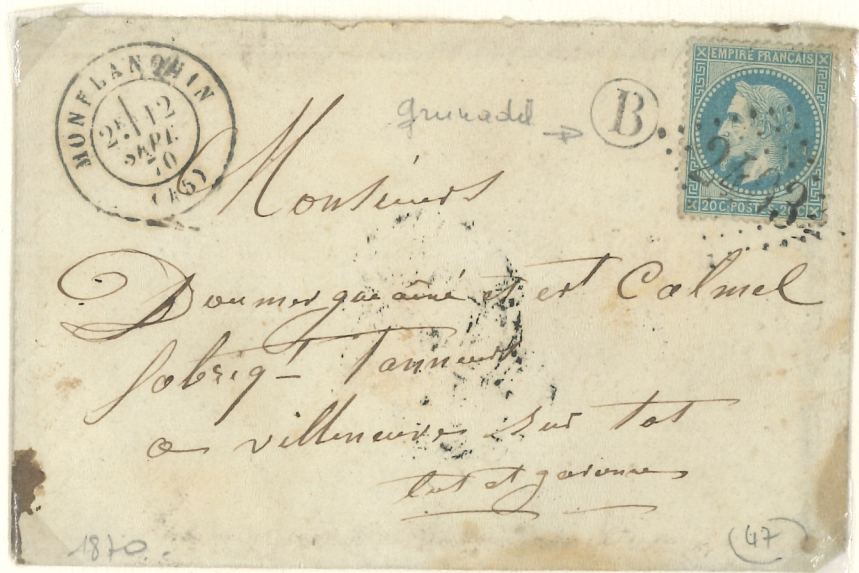 MONFLANQUIN
2E 12
SEPT.
70
(45)
B
EMPIRE FRANÇAIS
20 C. POSTES 20 C
Monsieurs
Doumergue ainé et est Calmel
fabriqt Tanneurs
a villeneuve sur lot
lot et garonne
1870.
(47)